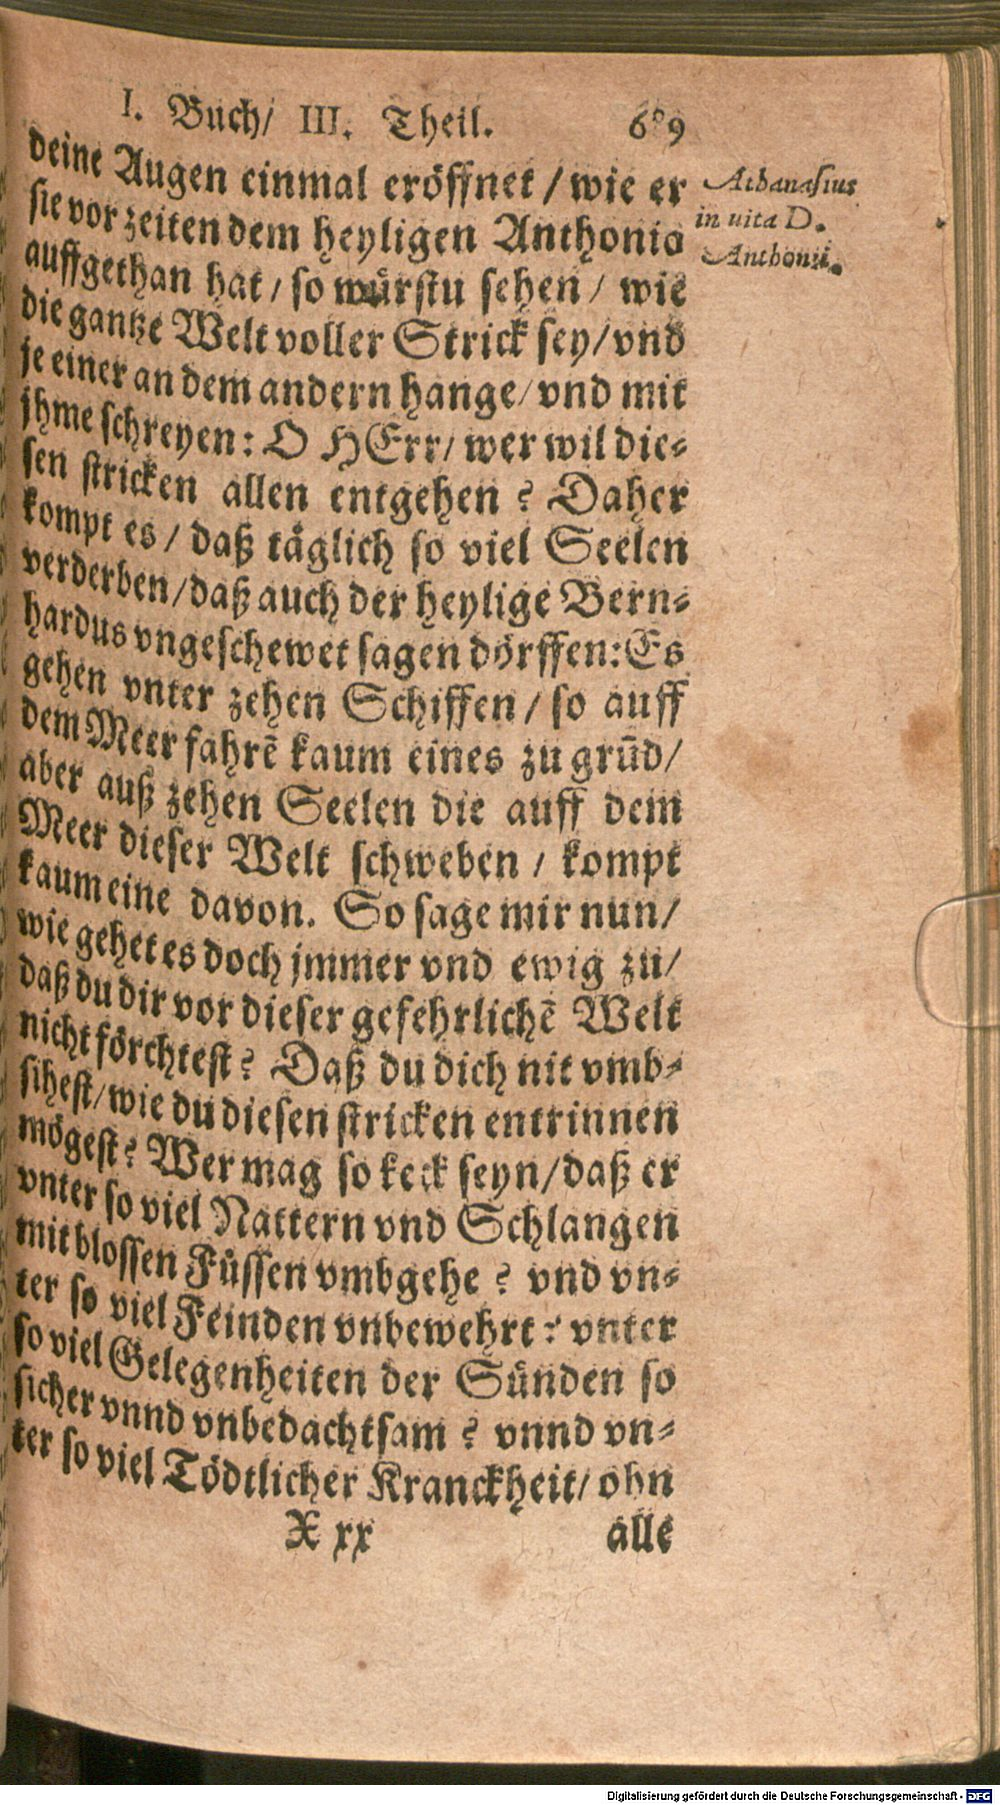 I. Buch/ III. Theil. 689
deine Augen einmal eröffnet / wie er
sie vor zeiten dem heyligen Anthonio
auffgethan hat / so würstu sehen / wie
die gantze Welt voller Strick sey / vnd
je einer an dem andern hange / vnd mit
jhme schreyen: O HErr / wer wil die-
sen stricken allen entgehen ? Daher
kompt es / daß täglich so viel Seelen
verderben / daß auch der heylige Bern-
hardus vngeschewet sagen dörffen: Es
gehen vnter zehen Schiffen / so auff
dem Meer fahrē kaum eines zu grūd /
aber auß zehen Seelen die auff dem
Meer dieser Welt schweben / kompt
kaum eine davon. So sage mir nun /
wie gehet es doch jmmer vnd ewig zu /
daß du dir vor dieser gefehrlichē Welt
nicht förchtest ? Daß du dich nit vmb-
sihest / wie du diesen stricken entrinnen
mögest ? Wer mag so keck seyn / daß er
vnter so viel Nattern vnd Schlangen
mit blossen Füssen vmbgehe ? vnd vn-
ter so viel Feinden vnbewehrt ? vnter
so viel Gelegenheiten der Sünden so
sicher vnnd vnbedachtsam ? vnnd vn-
ter so viel Tödtlicher Kranckheit / ohn
X xx alle
Athanasius
in uita D.
Anthonii.
Digitalisierung gefördert durch die Deutsche Forschungsgemeinschaft - DFG